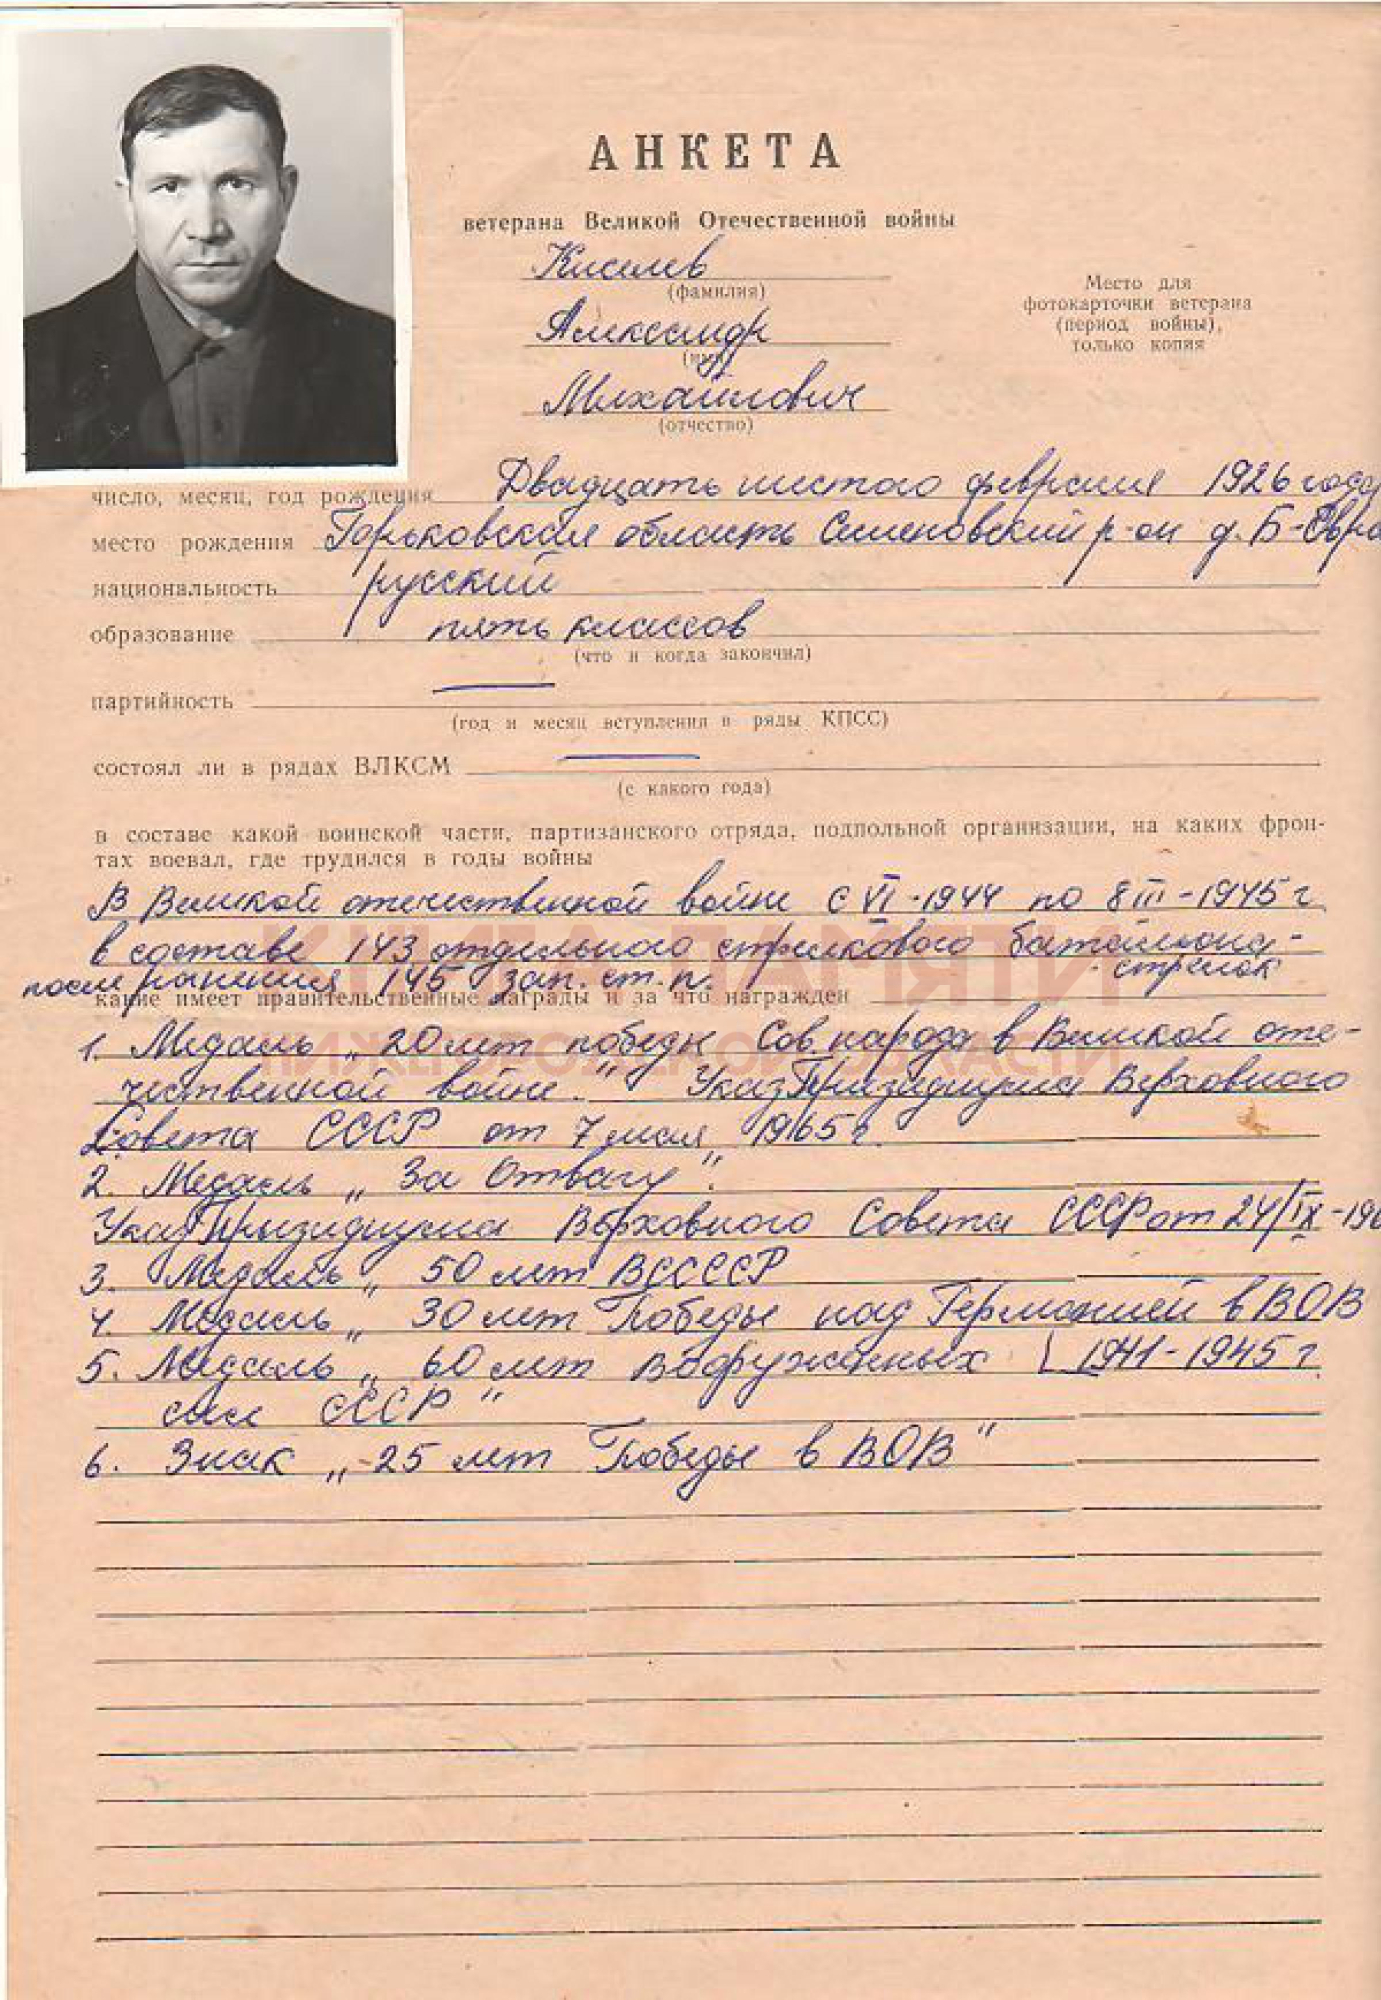 АНКЕТА
ветерана Великой Отечественной войны
Киселев
(фамилия)
Александр
(имя)
Михайлович
(отчество)
Место для
фотокарточки ветерана
(период войны),
только копия
число, месяц, год рождения Двадцать шестого февраля 1926 года
место рождения Горьковская область Семеновский р-он д. Б-
национальность русский
образование пять классов
(что и когда закончил)
партийность —
(год и месяц вступления в ряды КПСС)
состоял ли в рядах ВЛКСМ —
(с какого года)
в составе какой воинской части, партизанского отряда, подпольной организации, на каких фрон-
тах воевал, где трудился в годы войны
В Великой отечественной войне с VI-1944 по 8 III-1945 г
в составе 143 отдельного стрелкового батальона-
стрелок
после ранения 145 зап. ст. п.
какие имеет правительственные награды и за что награжден
1. Медаль „20 лет победы Сов. народа в Великой оте-
чественной войне." Указ Призидиума Верховного
Совета СССР от 7 мая 1965 г.
2. Медаль „За Отвагу".
Указ Призидиума Верховного Совета СССР от 24/IX-196
3. Медаль „50 лет ВССССР
4. Медаль „30 лет Победы над Германией в ВОВ
1941-1945 г.
5. Медаль „60 лет Вооруженных
сил СССР"
6. Знак „25 лет Победы в ВОВ"
КНИГА ПАМЯТИ
НИЖЕГОРОДСКОЙ ОБЛАСТИ